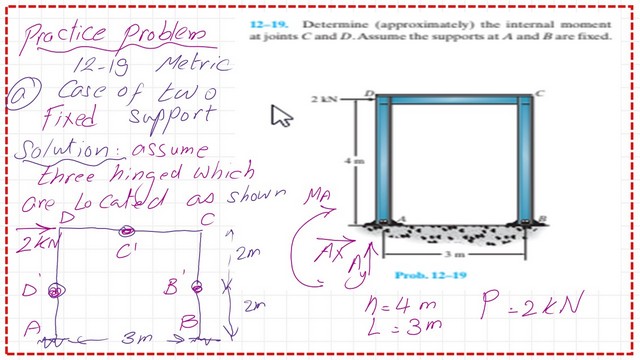 Practice Problem
12-19 Metric
a Case of two
Fixed support
Solution: assume
three hinged which
are Located as shown
D
C
2KN
C'
D'
B'
2m
2m
A
3m
B
12–19. Determine (approximately) the internal moment
at joints C and D. Assume the supports at A and B are fixed.
D
C
2 kN
4 m
A
B
3 m
Prob. 12–19
MA
Ax
Ay
h=4m
L=3m
P=2KN